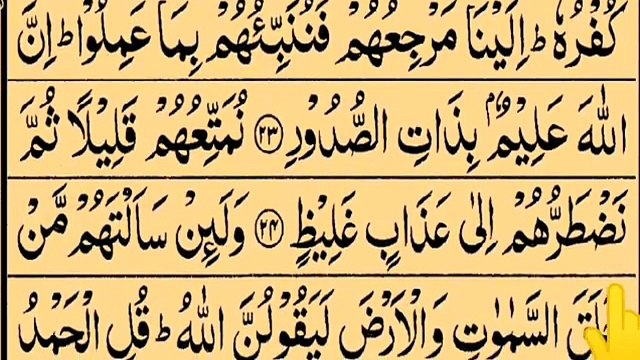 كُفْرُهٗ ؕ اِلَيْنَا مَرْجِعُهُمْ فَنُنَبِّئُهُمْ بِمَا عَمِلُوْا ؕ اِنَّ
اللّٰهَ عَلِيْمٌۢ بِذَاتِ الصُّدُوْرِ ﴿۲۳﴾ نُمَتِّعُهُمْ قَلِيْلًا ثُمَّ
نَضْطَرُّهُمْ اِلٰى عَذَابٍ غَلِيْظٍ ﴿۲۴﴾ وَلَئِنْ سَاَلْتَهُمْ مَّنْ
السَّمٰوٰتِ وَالْاَرْضَ لَيَقُوْلُنَّ اللّٰهُ ؕ قُلِ الْحَمْدُ